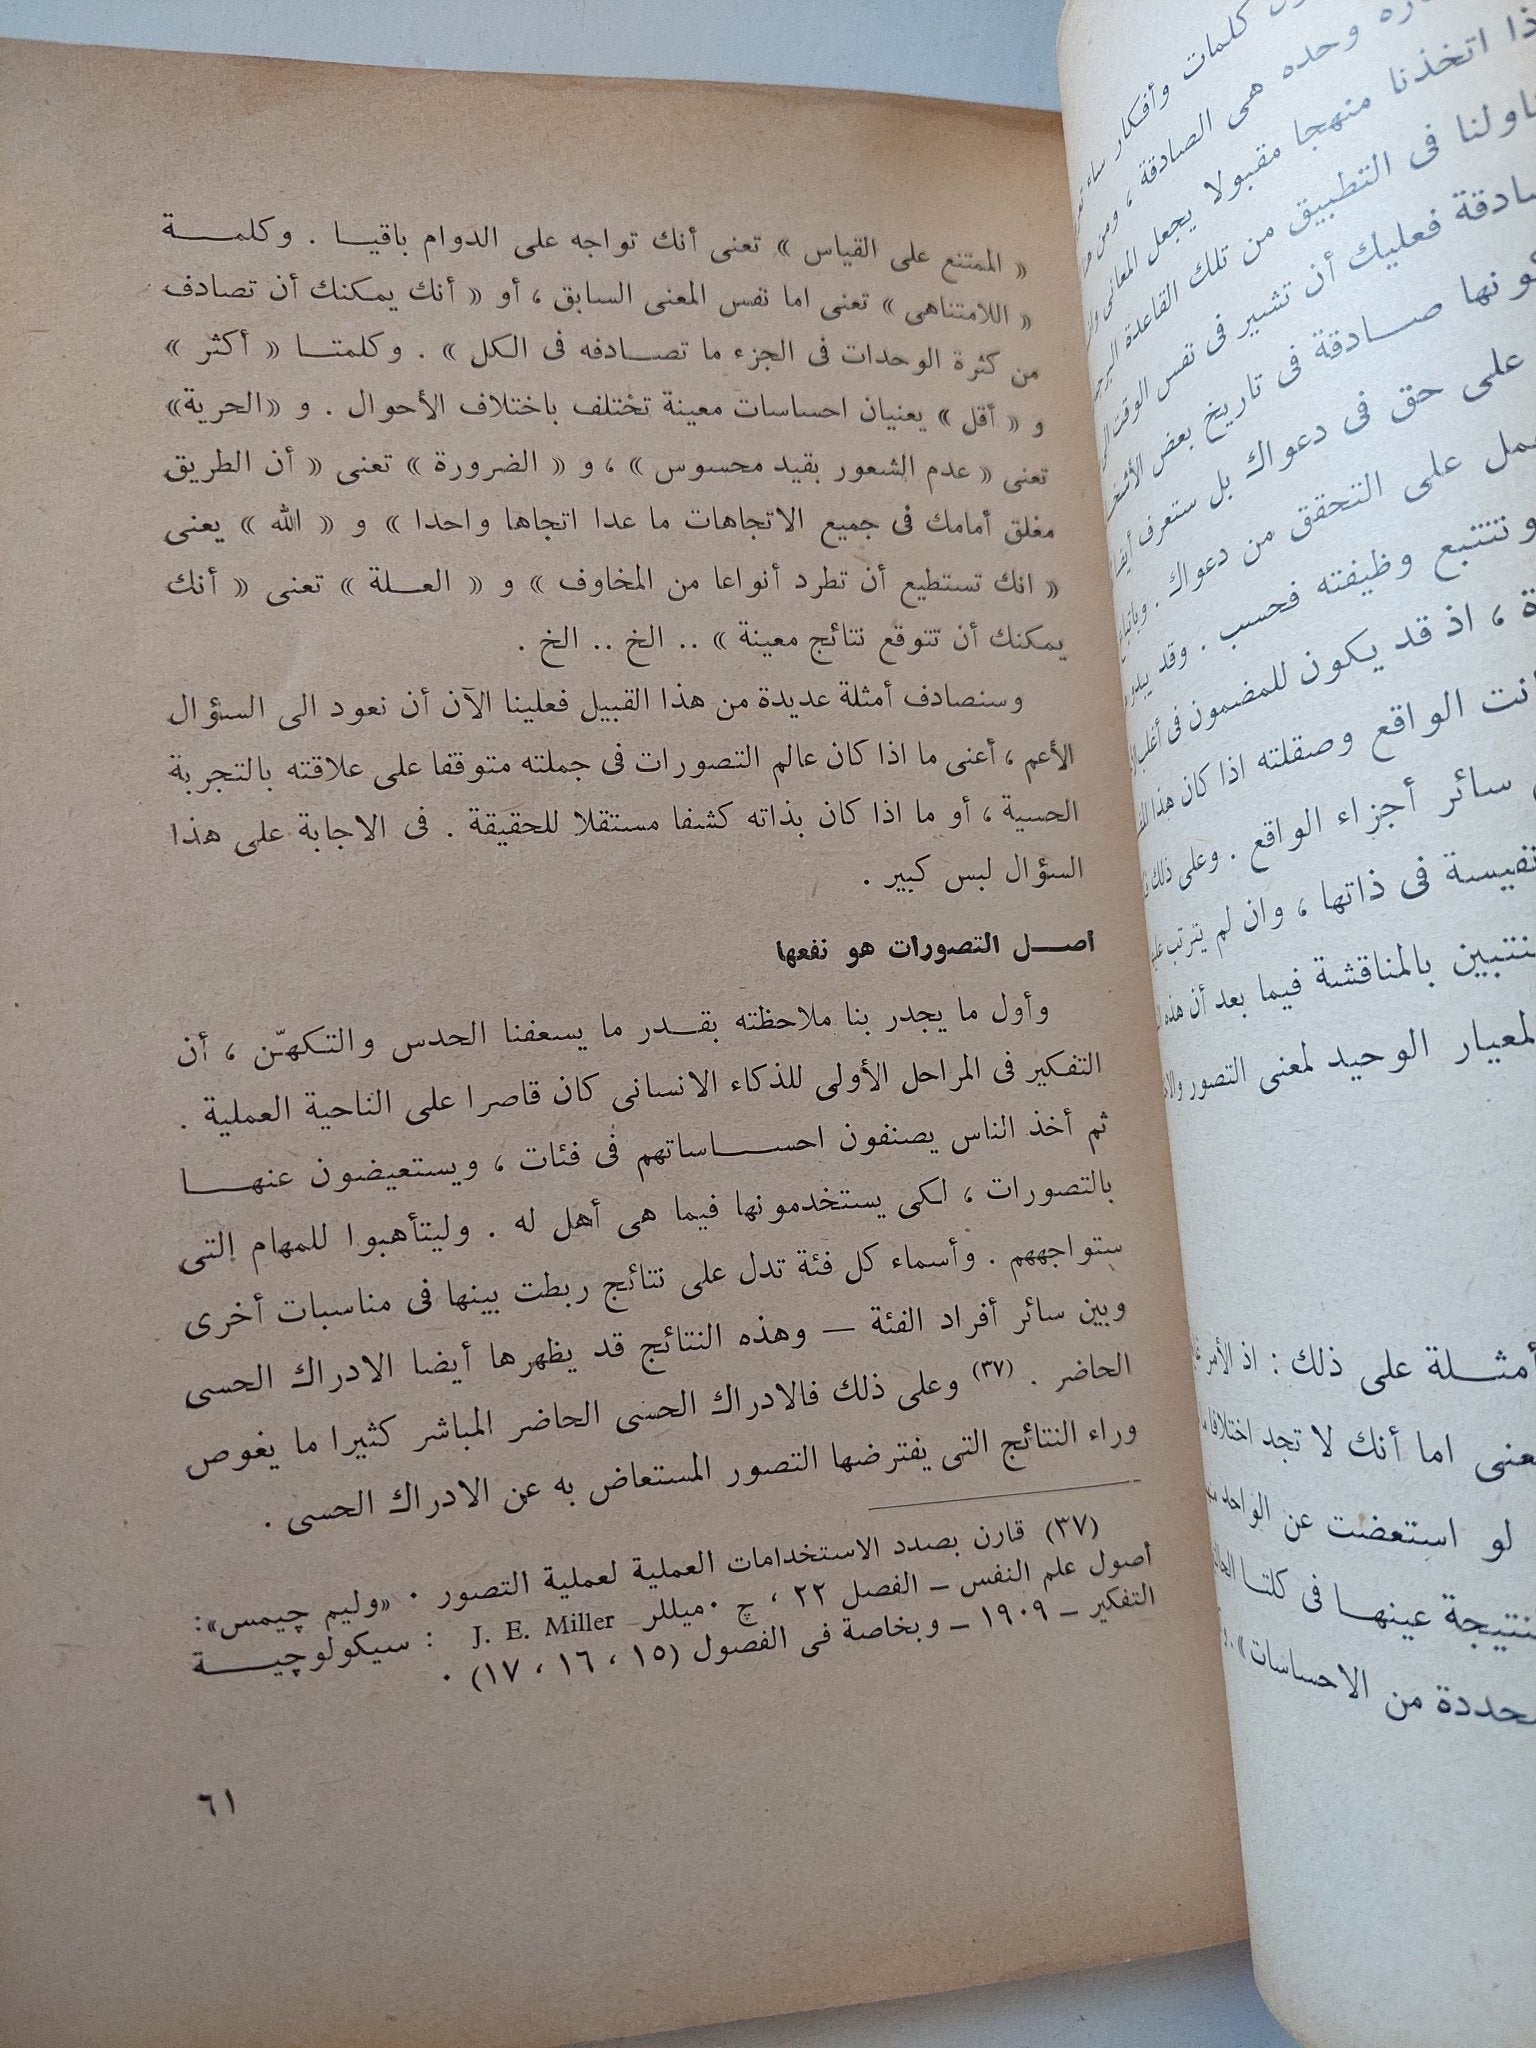 « الممتنع على القياس » تعنى أنك تواجه على الدوام باقيا . وكلمة
« اللامتناهى » تعنى اما نفس المعنى السابق ، أو « أنك يمكنك أن تصادف
من كثرة الوحدات فى الجزء ما تصادفه فى الكل » . وكلمتا « أكثر »
و « أقل » يعنيان احساسات معينة تختلف باختلاف الأحوال . و «الحرية»
تعنى « عدم الشعور بقيد محسوس » ، و « الضرورة » تعنى « أن الطريق
مغلق أمامك فى جميع الاتجاهات ما عدا اتجاها واحدا » و « الله » يعنى
« انك تستطيع أن تطرد أنواعا من المخاوف » و « العلة » تعنى « أنك
يمكنك أن تتوقع نتائج معينة » .. الخ .. الخ .
وسنصادف أمثلة عديدة من هذا القبيل فعلينا الآن أن نعود الى السؤال
الأعم ، أعنى ما اذا كان عالم التصورات فى جملته متوقفا على علاقته بالتجربة
الحسية ، أو ما اذا كان بذاته كشفا مستقلا للحقيقة . فى الاجابة على هذا
السؤال لبس كبير .
أصل التصورات هو نفعها
وأول ما يجدر بنا ملاحظته بقدر ما يسعفنا الحدس والتكهّن ، أن
التفكير فى المراحل الأولى للذكاء الانسانى كان قاصرا على الناحية العملية .
ثم أخذ الناس يصنفون احساساتهم فى فئات ، ويستعيضون عنها
بالتصورات ، لكى يستخدمونها فيما هى أهل له . وليتأهبوا للمهام التى
ستواجههم . وأسماء كل فئة تدل على نتائج ربطت بينها فى مناسبات أخرى
وبين سائر أفراد الفئة — وهذه النتائج قد يظهرها أيضا الادراك الحسى
الحاضر . (٣٧) وعلى ذلك فالادراك الحسى الحاضر المباشر كثيرا ما يغوص
وراء النتائج التى يفترضها التصور المستعاض به عن الادراك الحسى .
(٣٧) قارن بصدد الاستخدامات العملية لعملية التصور . «وليم چيمس»:
أصول علم النفس – الفصل ٢٢ ، چ . ميللر J. E. Miller : سيكولوچية
التفكير – ١٩٠٩ – وبخاصة فى الفصول (١٥ ، ١٦ ، ١٧) .
٦١
كلمات وأفكار
وحده هى الصادقة ، ومن
اتخذنا منهجا مقبولا يجعل المعانى
فى التطبيق من تلك القاعدة
فعليك أن تشير فى نفس الوقت
صادقة فى تاريخ بعض
على حق فى دعواك بل ستعرف أيضا
على التحقق من دعواك .
وتتتبع وظيفته فحسب . وقد
، اذ قد يكون للمضمون فى أغلب
الواقع وصقلته اذا كان هذا
سائر أجزاء الواقع . وعلى ذلك
نفيسة فى ذاتها ، وان لم يترتب
بالمناقشة فيما بعد أن هذه
الوحيد لمعنى التصور
أمثلة على ذلك : اذ الأمر
اما أنك لا تجد اختلافا
لو استعضت عن الواحد
عينها فى كلتا
من الاحساسات»